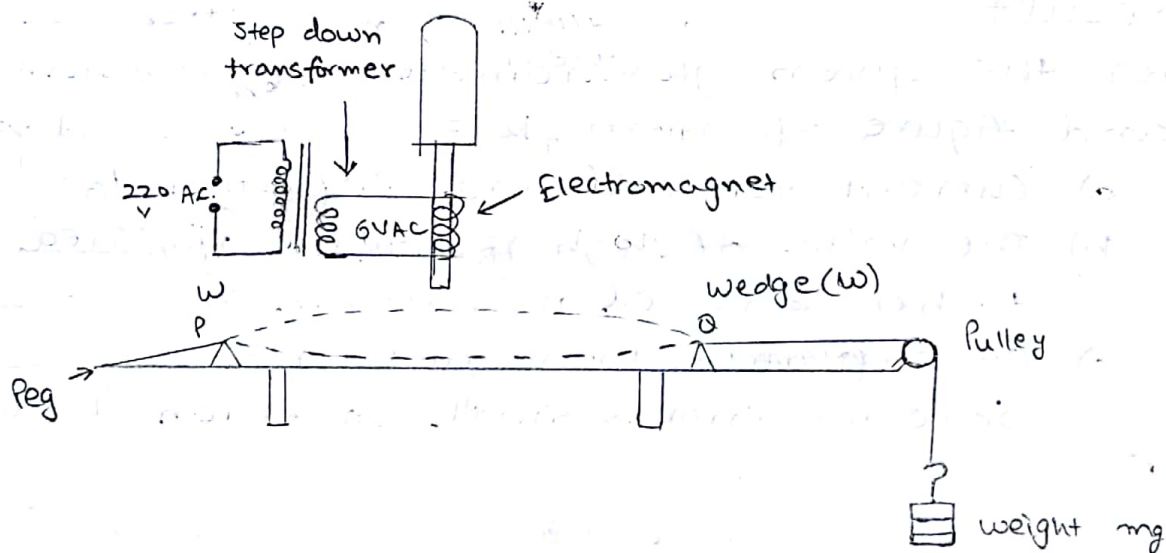 Step down
transformer
220 AC
V
6VAC
Electromagnet
W
P
Wedge(W)
Q
Pulley
Peg
weight mg